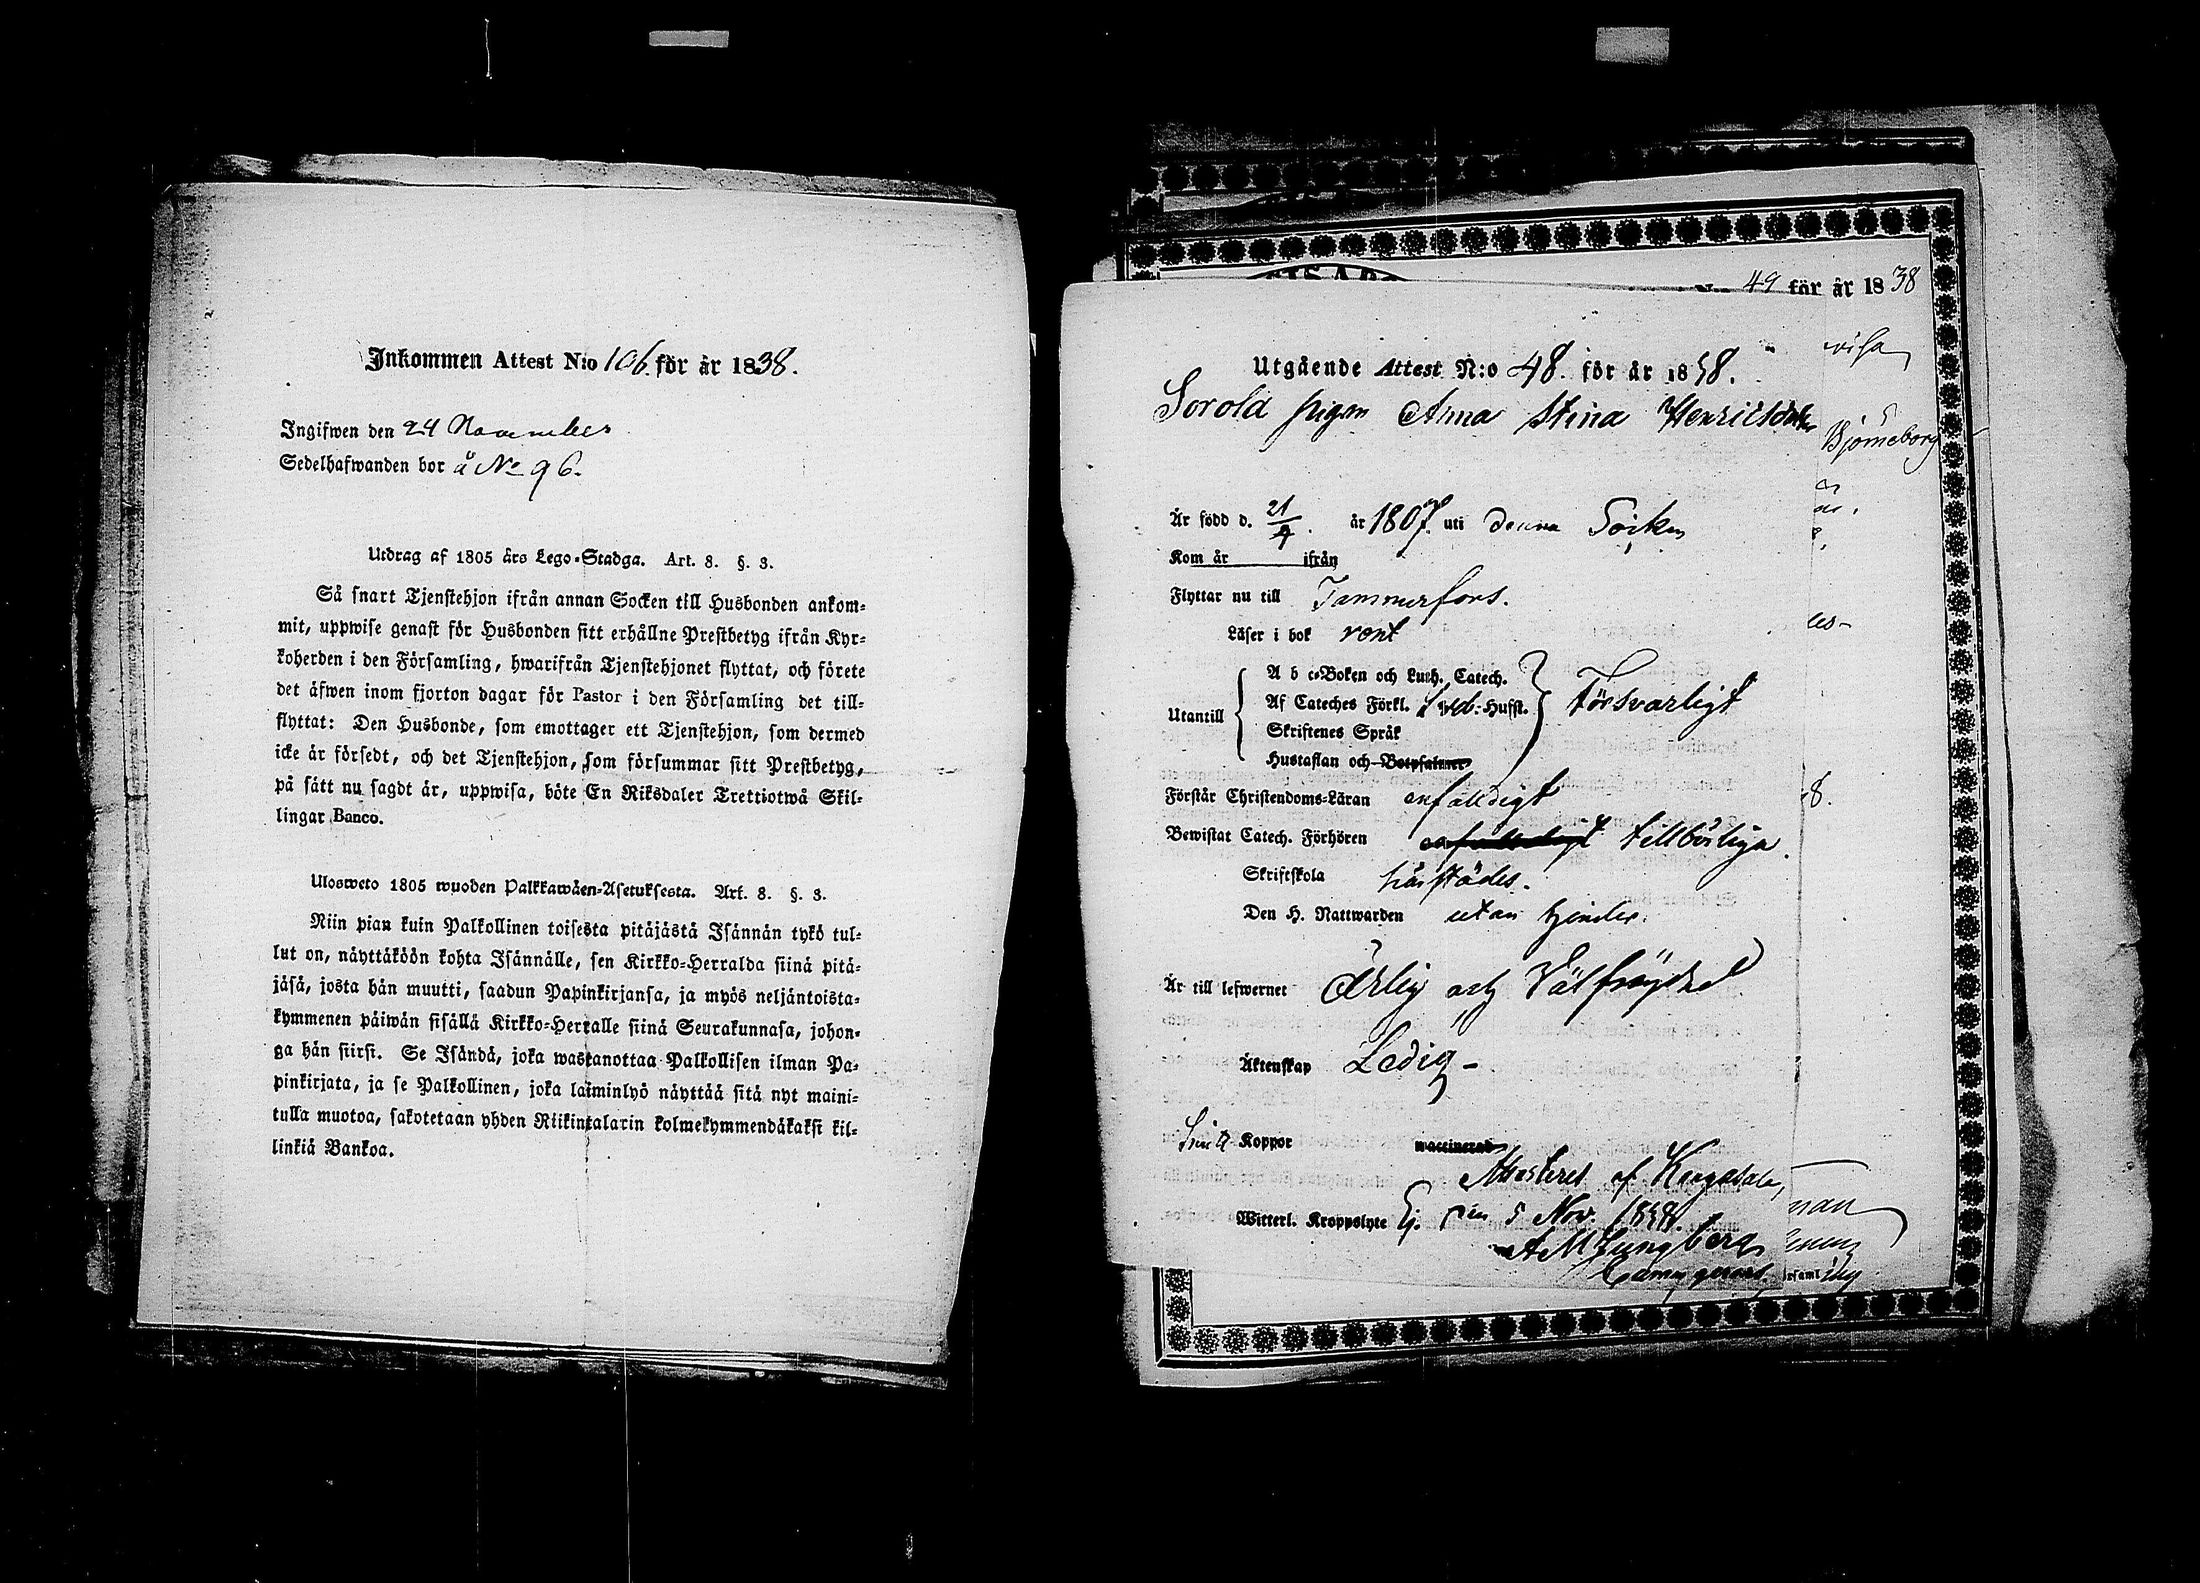 Inkommen Attest N:o 106. för år 1838.
Ingifwen den 24 November
Sedelhafwanden bor å No 96.
Utdrag af 1805 års Lego-Stadga. Art. 8. §. 3.
Så snart Tjenstehjon ifrån annan Socken till Husbonden ankom-
mit, uppwise genast för Husbonden sitt erhållne Prestbetyg ifrån Kyr-
koherden i den Församling, hwarifrån Tjenstehjonet flyttat, och förete
det äfwen inom fjorton dagar för Pastor i den Församling det till-
flyttat: Den Husbonde, som emottager ett Tjenstehjon, som dermed
icke är försedt, och det Tjenstehjon, som försummar sitt Prestbetyg,
på sätt nu sagdt är, uppwisa, böte En Riksdaler Trettiotwå Skil-
lingar Banco.
Ulosweto 1805 wuoden Palkkawäen-Asetuksesta. Art. 8. §. 3.
Niin pian kuin Palkollinen toisesta pitäjästä Isännän tykö tul-
lut on, näyttäköön kohta Isännälle, sen Kirkko-Herralda siinä pitä-
jäsä, josta hän muutti, saadun Papinkirjansa, ja myös neljäntoista-
kymmenen päiwän sisällä Kirkko-Herralle siinä Seurakunnasa, johon-
ga hän siirsi. Se Isändä, joka wastanottaa Palkollisen ilman Pa-
pinkirjata, ja se Palkollinen, joka laiminlyö näyttää sitä nyt maini-
tulla muotoa, sakotetaan yhden Riikintalarin kolmekymmendäkaksi kil-
linkiä Bankoa.
49 för år 1838
Utgående Attest N:o 48. för år 1838.
Sorola pigan Anna Stina Henricsdotter
Björneborg
Är född d. 21/9. år 1807. uti denna Socken
Kom år ifrån
Flyttar nu till Tammerfors.
Läser i bok rent
Utantill
A b c-Boken och Luth. Catech.
Af Cateches Förkl. Sveb: Hufst. Försvarligt
Skriftenes Språk
Hustaflan och Botpsalmer
Förstår Christendoms-Läran enfalldigt
Bewistat Catech. Förhören enfalldigt tillbörligen.
Skriftskola härstädes.
Den H. Nattwarden utan hinder.
Är till lefwernet Ärlig och Välfrejdad
Äktenskap Ledig-
Koppor waccinerad
Attesteret af Kangasala,
Witterl. Kroppslyte Ej. den 5 Nov. 1838.
A M Ljungberg